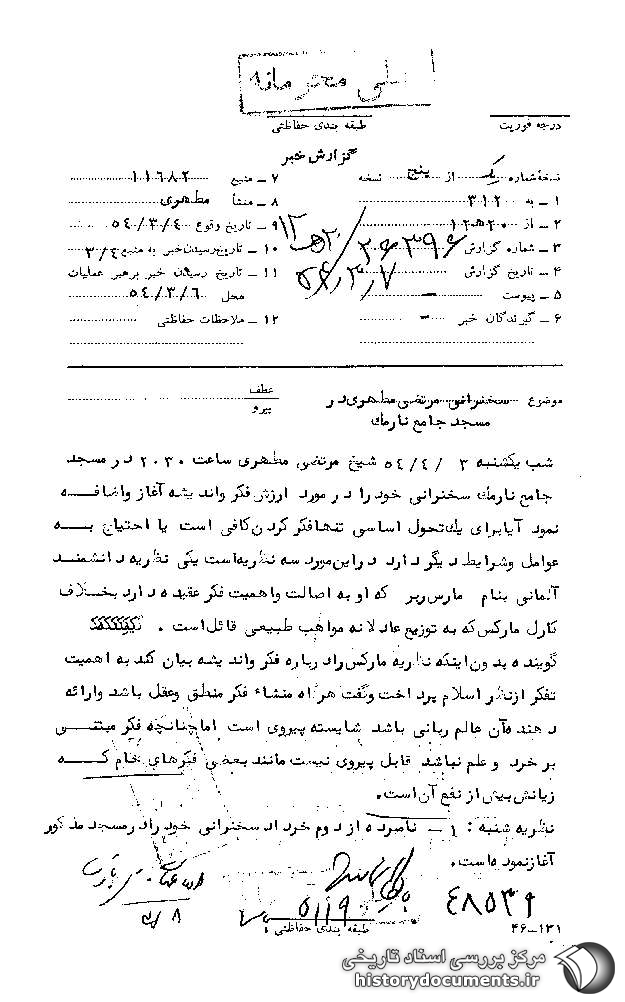 خیلی محرمانه
درجه فوریت
طبقه بندی حفاظتی
گزارش خبر
نسخه شماره یک از پنج نسخه
۱ – به ۳۱۲
۲ – از ۲۰ ه‍ ۱۲
۳ – شماره گزارش ۲۰۳۹۶ / ۲۰ ه‍ ۱۲
۴ – تاریخ گزارش ۵۴/۳/۷
۵ – پیوست –
۶ – گیرندگان خبر –
۷ – منبع ۱۱۶۸۲
۸ – منشأ مطهری
۹ – تاریخ وقوع ۵۴/۳/۴
۱۰ – تاریخ رسیدن خبر به منبع ۳/۴
۱۱ – تاریخ رسیدن خبر برهبر عملیات
محل ۵۴/۳/۶
۱۲ – ملاحظات حفاظتی
موضوع سخنرانی مرتضی مطهری در
مسجد جامع نارمك
عطف
پیرو
شب یکشنبه ۳ /۵۴/۴ شیخ مرتضی مطهری ساعت ۲۰۳۰ در مسجد
جامع نارمك سخنرانی خود را در مورد ارزش فکر واندیشه آغاز واضافه
نمود آیا برای یك تحول اساسی تنها فکر کردن کافی است یا احتیاج به
عوامل وشرایط دیگر دارد در این مورد سه نظریه است یکی نظریه دانشمند
آلمانی بنام مارس ربر که او به اصالت واهمیت فکر عقیده دارد بخلاف
کارل مارکس که به توزیع عادلانه مواهب طبیعی قائل است .
گوینده بدون اینکه نظریه مارکس را درباره فکر واندیشه بیان کند به اهمیت
تفکر از نظر اسلام پرداخت وگفت هرگاه منشاء فکر منطق وعقل باشد وارائه
دهنده آن عالم ربانی باشد شایسته پیروی است اما چنانچه فکر مبتنی
بر خرد و علم نباشد قابل پیروی نیست مانند بعضی فکرهای خام که
زیانش بیش از نفع آن است.
نظریه شنبه : ۱ – نامبرده از دوم خرداد سخنرانی خود را در مسجد مذکور
آغاز نموده است.
۴۸۵۳۹
۵۱۱۹
طبقه بندی حفاظتی
۴۶–۱۳۱
مرکز بررسی اسناد تاریخی
historydocuments.ir